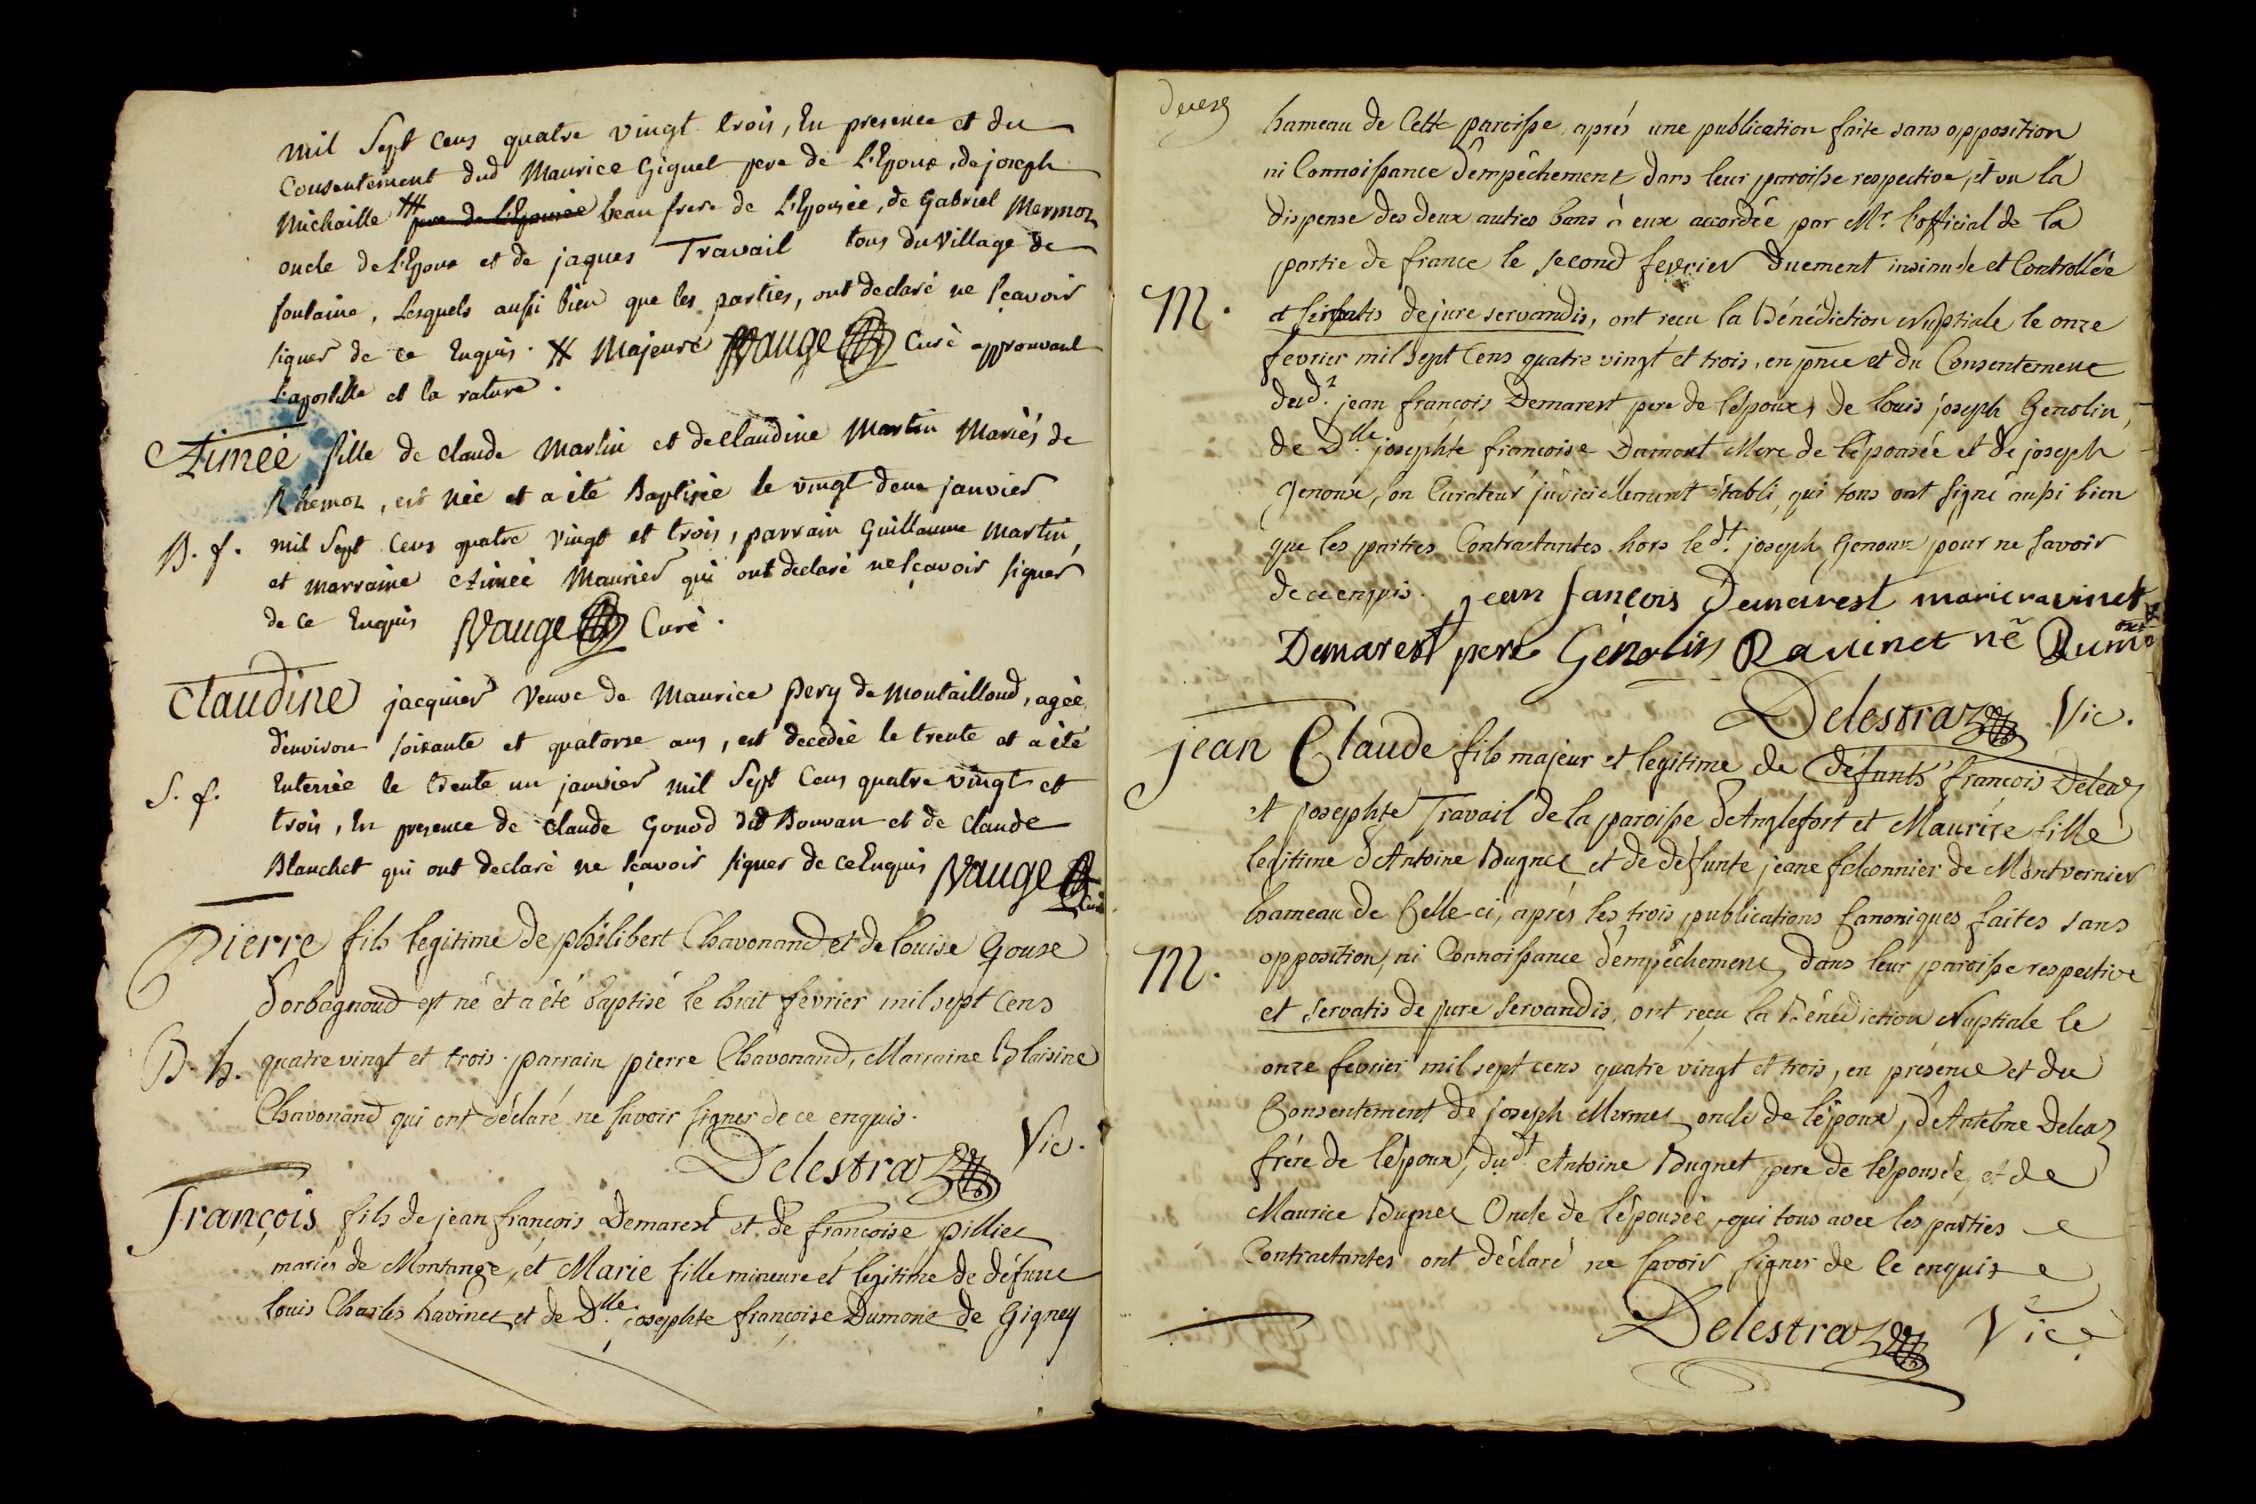 mil Sept cens quatre vingt trois, En presence et du
Consentement dud Maurice Giguet pere de L'Epoux, de joseph
Michaille # pere de L'Epousée beau frere de L'Epousée, de Gabriel Mermoz
oncle de L'Epoux et de jaques Travail tous du Village de
fontaine, Lesquels aussi bien que les parties, ont declaré ne sçavoir
signer de ce Enquis. # Majeure Vauge Curé approuvant
L'apostille et la rature.
Aimée fille de claude Martin et de claudine Martin Mariés de
Rhemoz, est née et a été Baptisée le vingt deux janvier
B. f. mil Sept Cens quatre vingt et trois, parrain Guillaume Martin,
et marraine Aimée Maurier qui ont declaré ne sçavoir signer
de ce Enquis Vauge Curé.
Claudine jacquier Veuve de Maurice pery de Montailloud, agée
d'environ soixante et quatorse ans, est decedée le trente et a été
S. f. Enterrée le trente un janvier mil Sept Cens quatre vingt et
trois, En presence de claude Gonod dit Bouvan et de claude
Blanchet qui ont declaré ne sçavoir signer de ce Enquis Vauge
Curé
Pierre fils legitime de philibert Chavonand et de louise Gouse
Dorbagnoud est né et a été baptisé le huit fevrier mil sept cens
B. h. quatre vingt et trois. parrain pierre Chavonand, Marraine Claisine
Chavonand qui ont déclaré ne savoir signer de ce enquis.
Delestraz Vic.
françois fils de jean françois Demarest et de françoise pilliet
mariés de Montange, et Marie fille mineure et legitime de défunt
louis Charles Ravinet et de Dlle. josephte françoise Dumont de Gigney
hameau de Cette paroisse, aprés une publication faite sans opposition
ni Connoissance d'empêchement dans leur paroisse respective, et vu la
dispense des deux autres bans à eux accordée par Mr. l'official de la
partie de france le second fevrier duement insinuée et Controllée
M. et servatis de jure servandis, ont reçu la Bénédiction Nuptiale le onze
fevrier mil sept Cens quatre vingt et trois, en pnce et du Consentement
dud. jean françois Demarest pere de l'époux, de louis joseph Genolin,
de Dlle josephte françoise Dumont Mere de l'épousée et de joseph
Genoux, son Curateur juridiciellement établi, qui tous ont signé aussi bien
que les parties Contractantes hors led. joseph Genoux pour ne savoir
de ce enquis. jean françois Demarest marie ravinet
Demarest pere Genolin Ravinet né Dumont
Delestraz Vic.
jean Claude fils majeur et legitime de défunts françois Deleaz
et josephte Travail de la paroisse d'Anglefort et Maurise fille
legitime d'Antoine Bugnet et de défunte jeane falconnier de Montvernier
hameau de Celle-ci, aprés les trois publications Canoniques faites sans
M. opposition, ni Connoissance d'empêchement, dans leur paroisse respective
et servatis de jure servandis, ont reçu la Bénédiction Nuptiale le
onze fevrier mil sept cens quatre vingt et trois, en présence et du
Consentement de joseph Mermet oncle de l'époux, d'Antelme Deleaz
frére de l'époux, dudt Antoine Bugnet pere de l'épousée, et de
Maurice Bugnet Oncle de l'épousée, qui tous avec les parties
Contractantes ont déclaré ne savoir signer de ce enquis
Delestraz Vic.